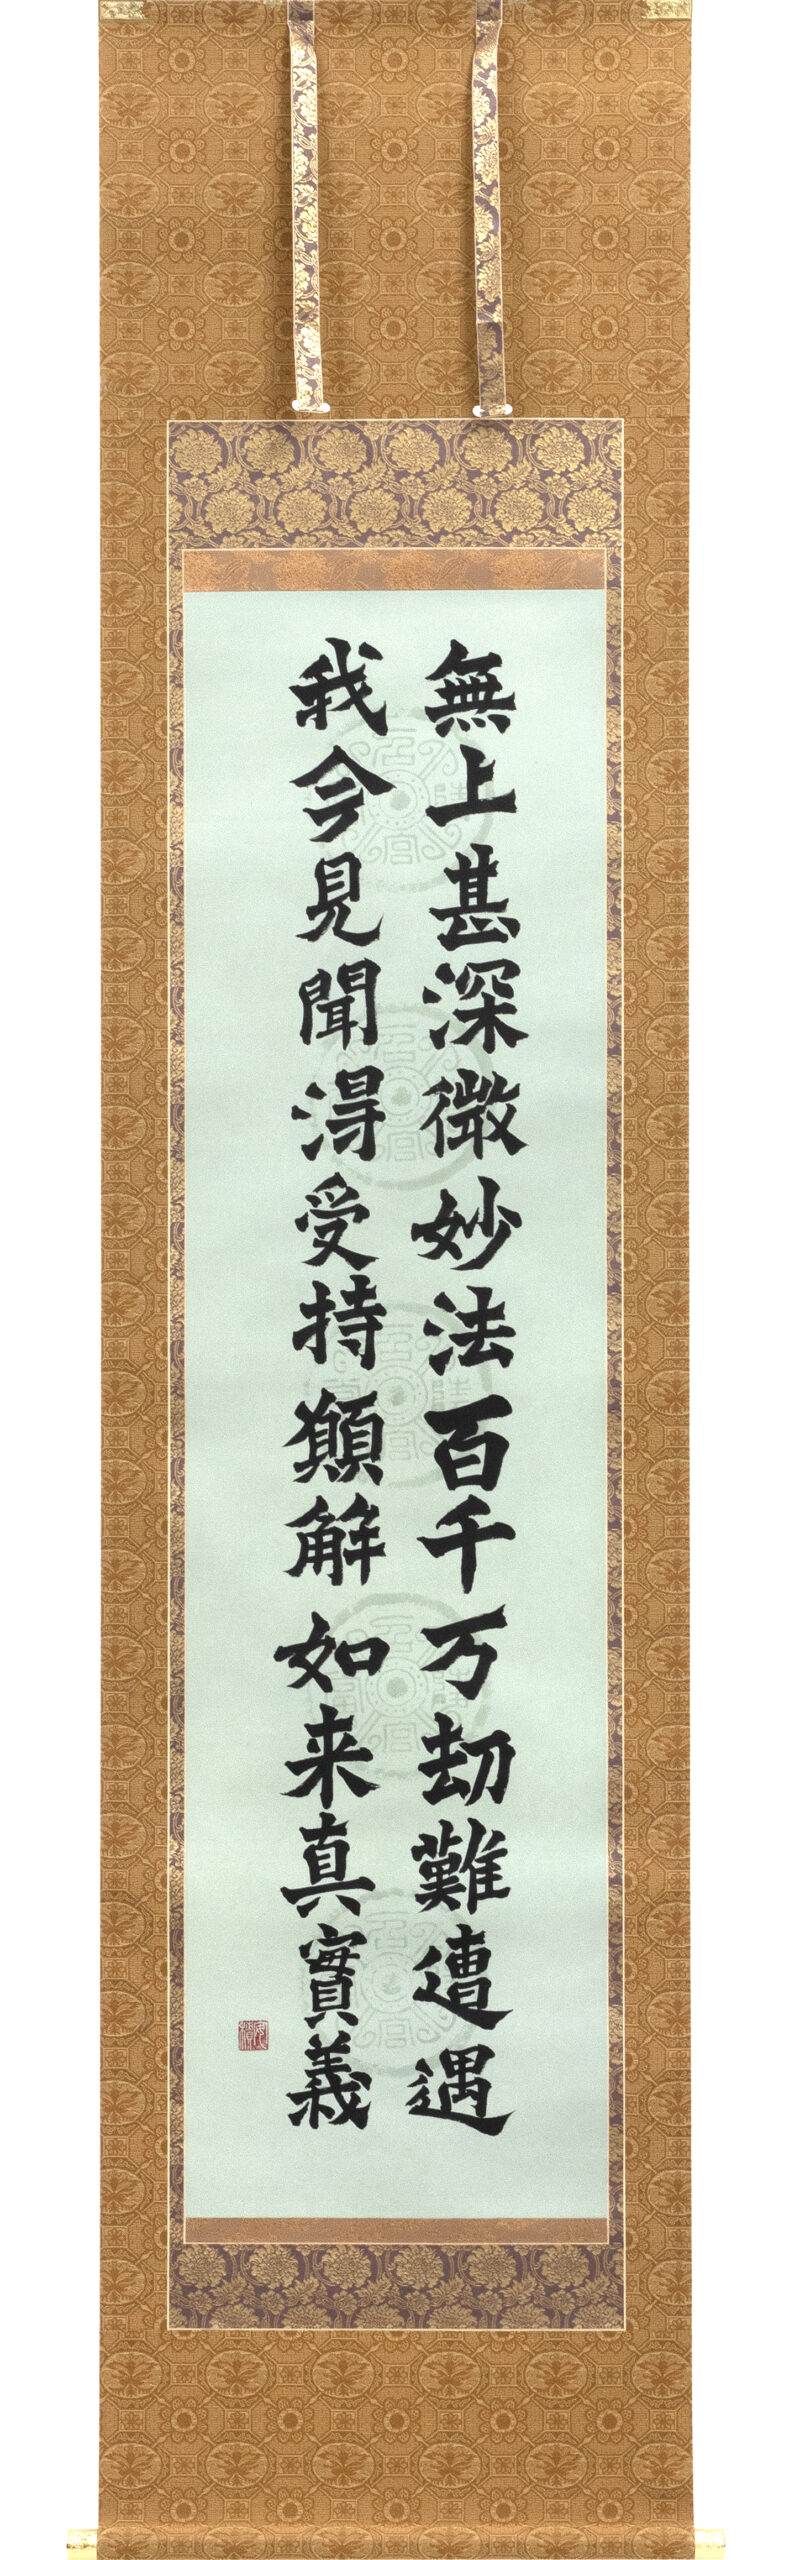 無上甚深微妙法百千万劫難遭遇
我今見聞得受持願解如来真實義